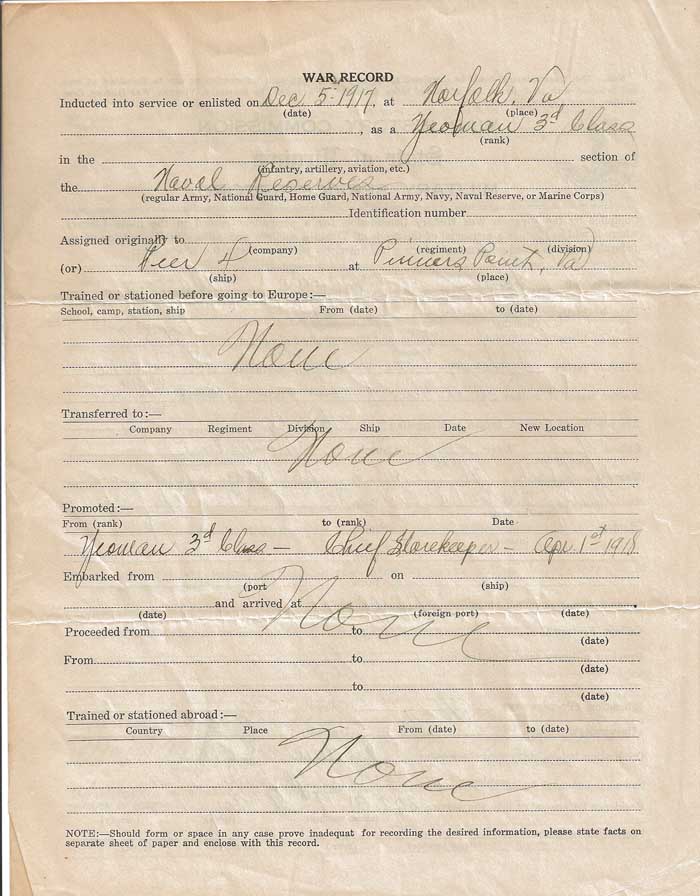 WAR RECORD
Inducted into service or enlisted on Dec 5-1917, at Norfolk, Va
(date) (place)
, as a Yeoman 3d Class
(rank)
in the section of
(infantry, artillery, aviation, etc.)
the Naval Reserves
(regular Army, National Guard, Home Guard, National Army, Navy, Naval Reserve, or Marine Corps)
Identification number
Assigned originally to
(company) (regiment) (division)
(or) Pier 4 at Pinners Point, Va
(ship) (place)
Trained or stationed before going to Europe:—
School, camp, station, ship From (date) to (date)
None
Transferred to:—
Company Regiment Division Ship Date New Location
None
Promoted:—
From (rank) to (rank) Date
Yeoman 3d Class — Chief Storekeeper — Apr. 1st 1918
Embarked from on
(port (ship)
and arrived at
(date) (foreign port) (date)
None
Proceeded from to
(date)
From to
(date)
to
(date)
Trained or stationed abroad:—
Country Place From (date) to (date)
None
NOTE:—Should form or space in any case prove inadequat for recording the desired information, please state facts on
separate sheet of paper and enclose with this record.